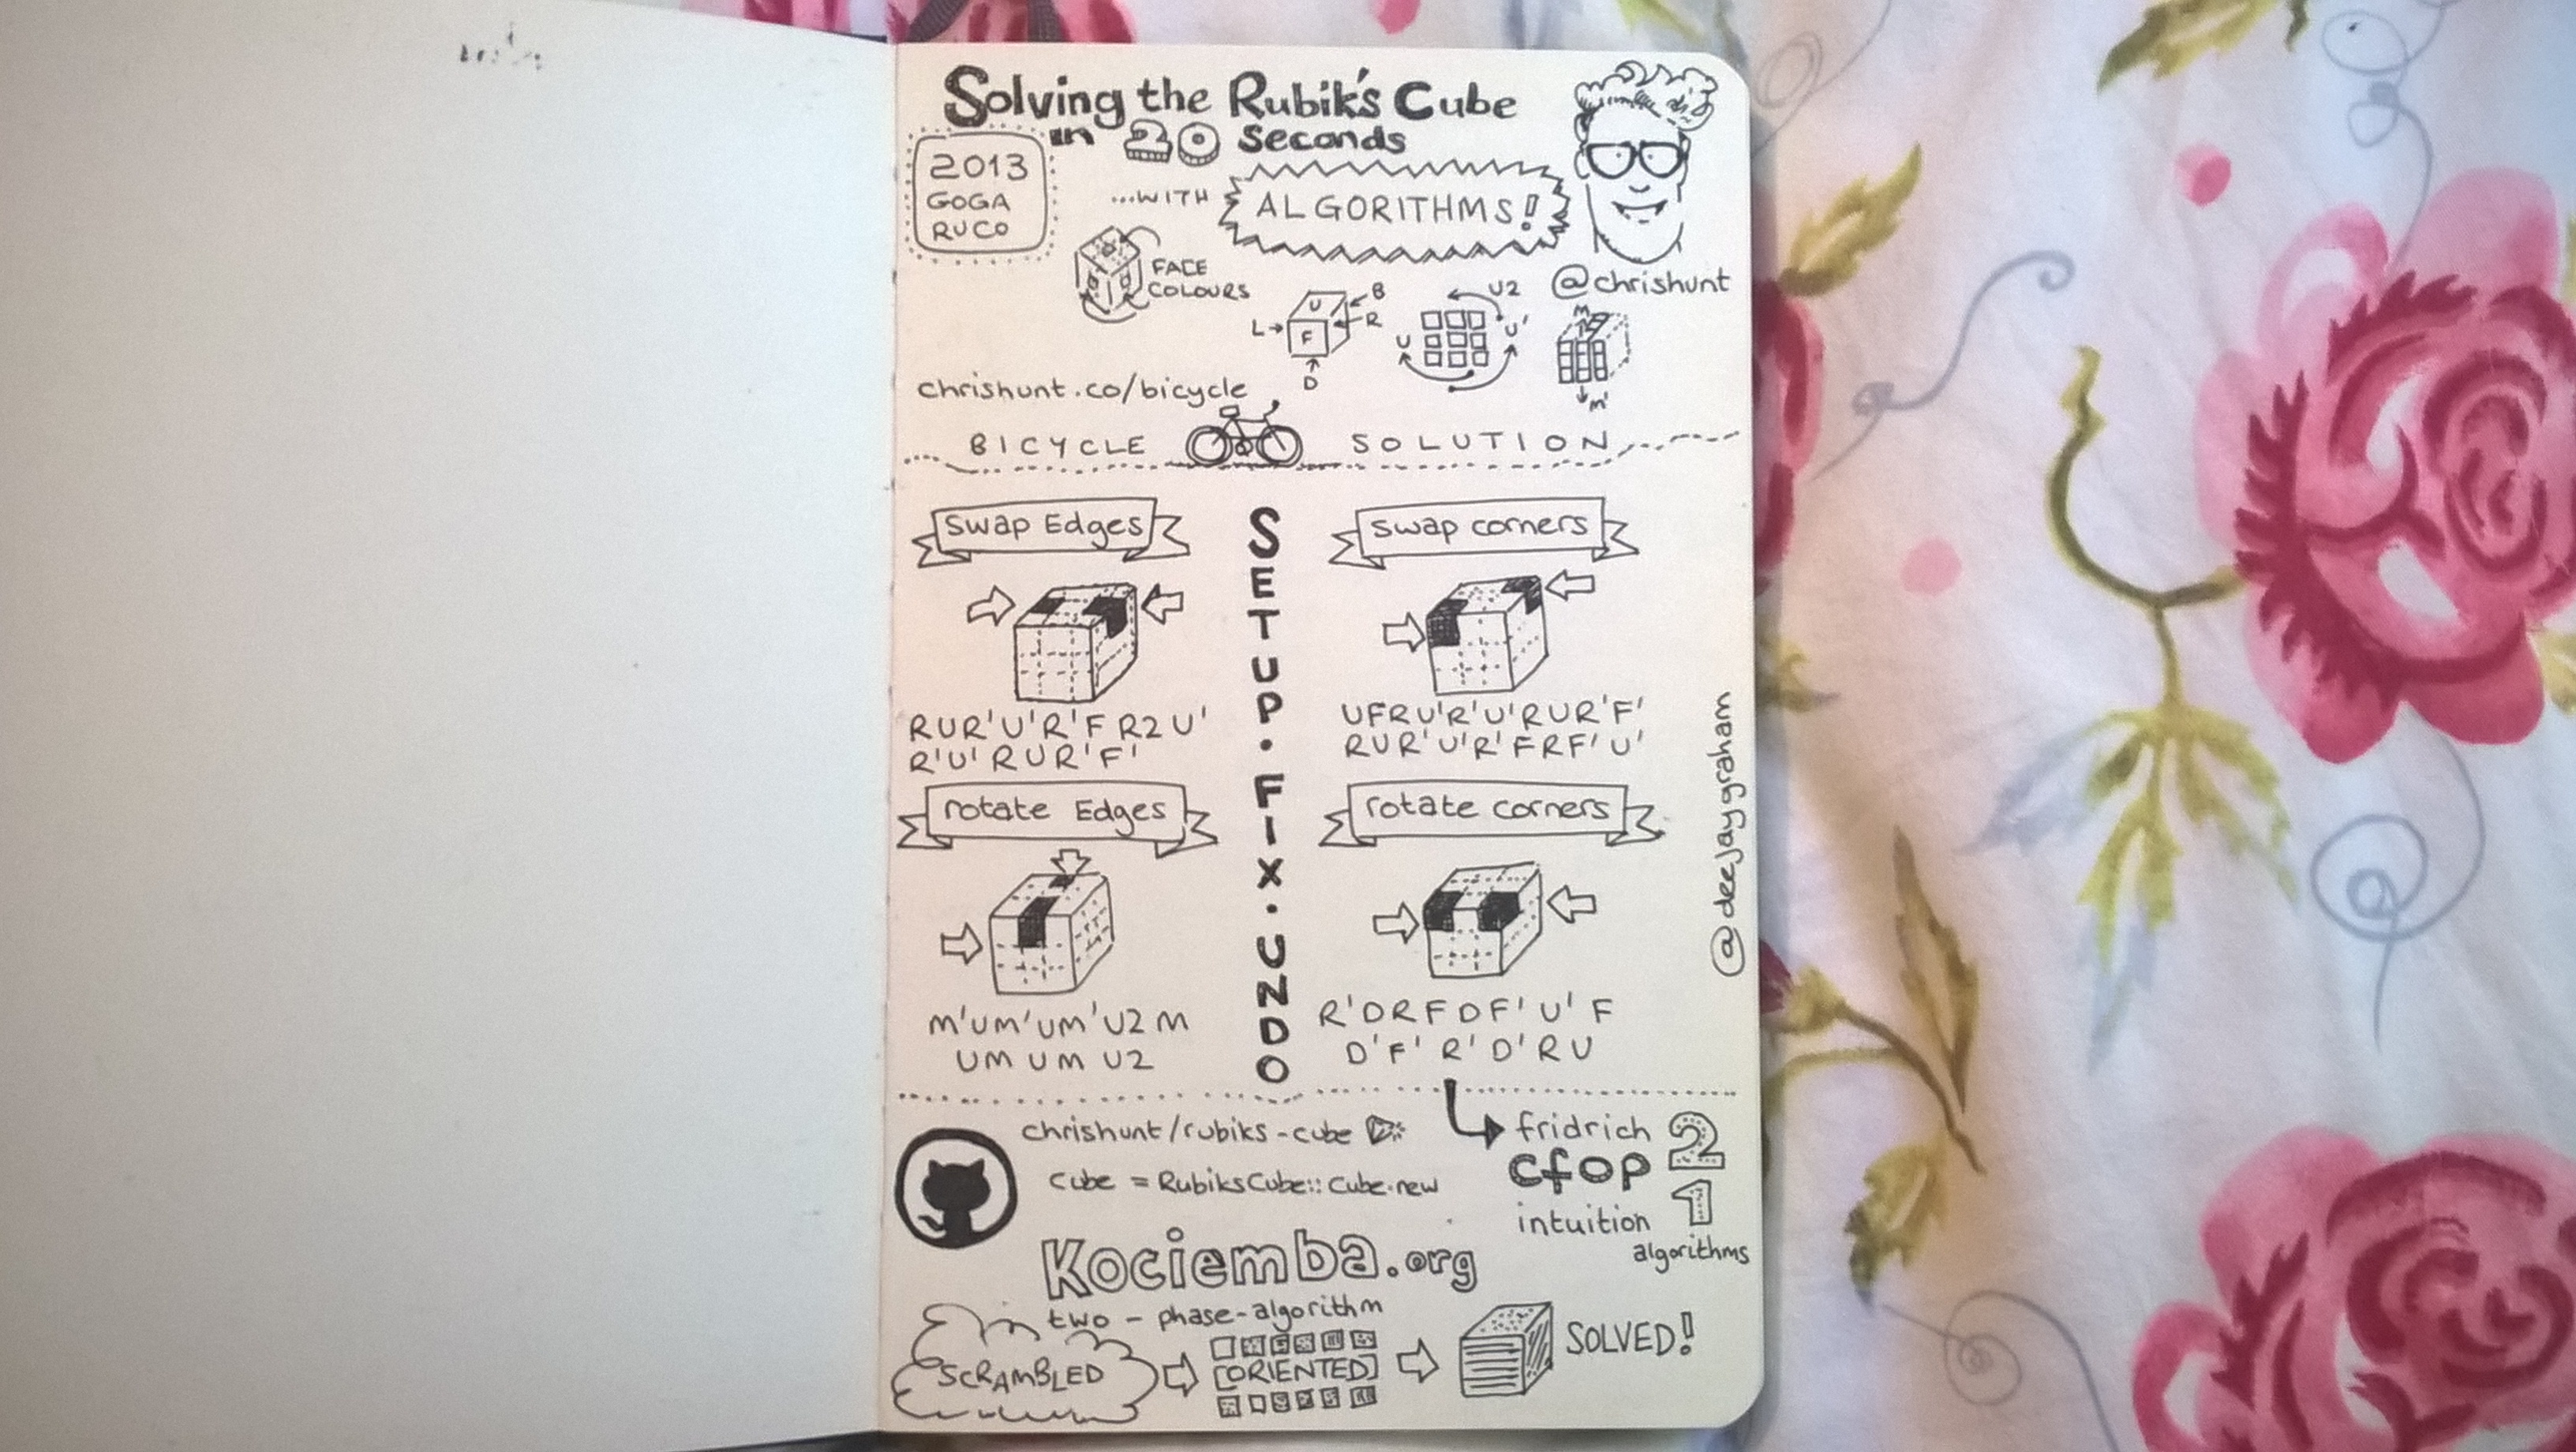 Solving the Rubik's Cube
in 20 Seconds
2013
GOGA
RUCO
...WITH ALGORITHMS!
@chrishunt
FACE
COLOURS
U
F
L
B
R
D
U2
U
U'
M
M'
chrishunt.co/bicycle
BICYCLE SOLUTION
SETUP · FIX · UNDO
swap Edges
RUR'U'R'F R2 U'
R'U' RUR'F'
swap corners
UFRU'R'U'RUR'F'
RUR'U'R'FRF'U'
rotate Edges
M'UM'UM'U2 M
UM UM U2
rotate corners
R'DRFDF'U'F
D'F'R'D'RU
@deejaygraham
chrishunt/rubiks-cube
cube = RubiksCube::Cube.new
fridrich
cfop 2
intuition 1
algorithms
Kociemba.org
two-phase-algorithm
SCRAMBLED
[ORIENTED]
SOLVED!